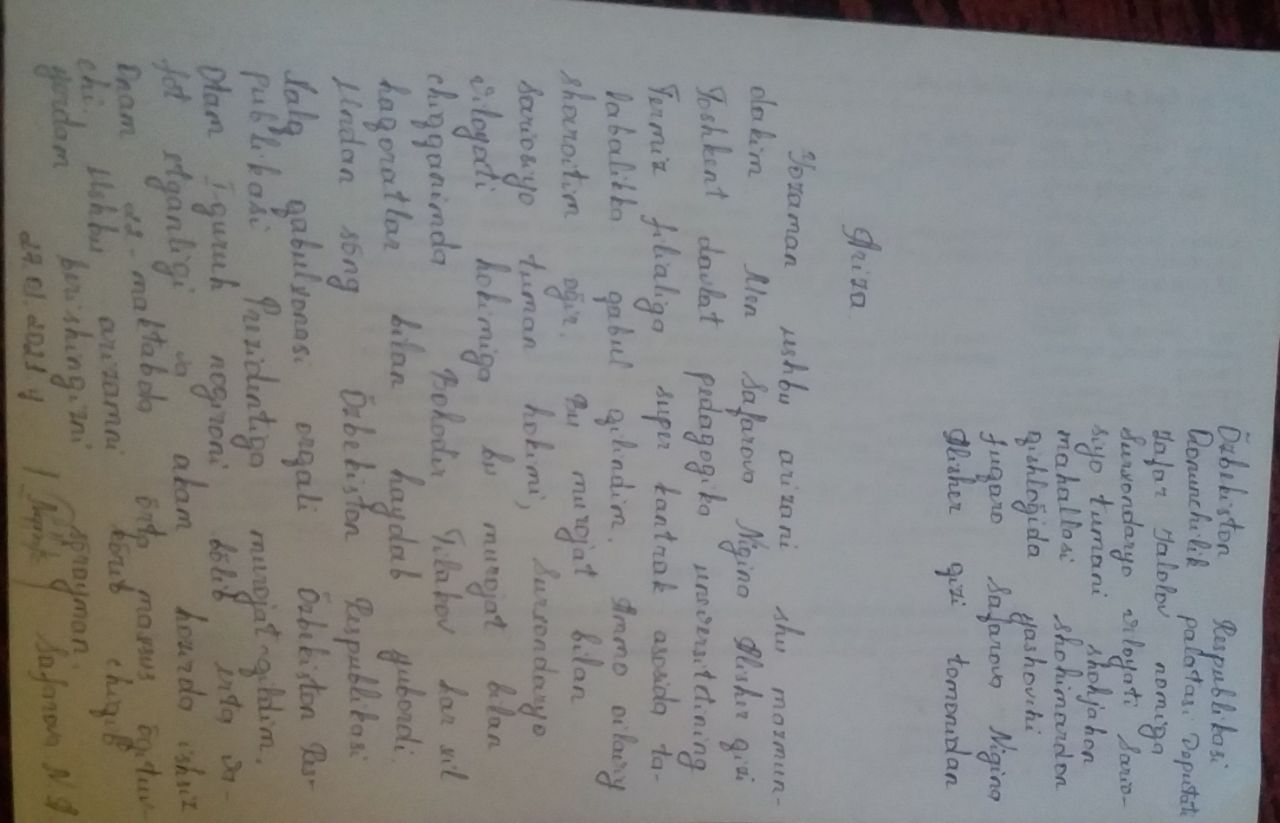 Õzbekiston Respublikasi
Qonunchilik palatasi Deputati
Jafar Jalolov nomiga
Surxondaryo viloyati Sario-
siyo tumani Shohjahon
mahallasi Shohimardon
qishloğida yashovchi
fuqaro Safarova Nigina
Alisher qizi tomonidan
Ariza
Yozaman ushbu arizani shu mazmun-
dakim Men Safarova Nigina Alisher qizi
Toshkent davlat pedagogika unversitetining
Termiz filialiga super kantrak asosida ta-
labalikka qabul qilindim. Ammo oilaviy
sharoitim oğir. Bu murojat bilan
Sariosiyo tuman hokimi, Surxondaryo
viloyati hokimiga bu murojat bilan
chiqqanimda Bohodir Tilabov har xil
haqoratlar bilan haydab yubordi.
Undan sõng Õzbekiston Respublikasi
Xalq qabulxonasi orqali Õzbekiston Res-
publikasi Prezidentiga murojat qildim.
Otam I guruh nogironi bõlib, erta va-
fot etganligi va akam hozirda ishsiz
Onam 22-maktabda õrta maxsus õqituv-
chi. Ushbu arizamni kõrib chiqib
yordam berishingizni sõrayman.
27.01.2021 y Safarova N A